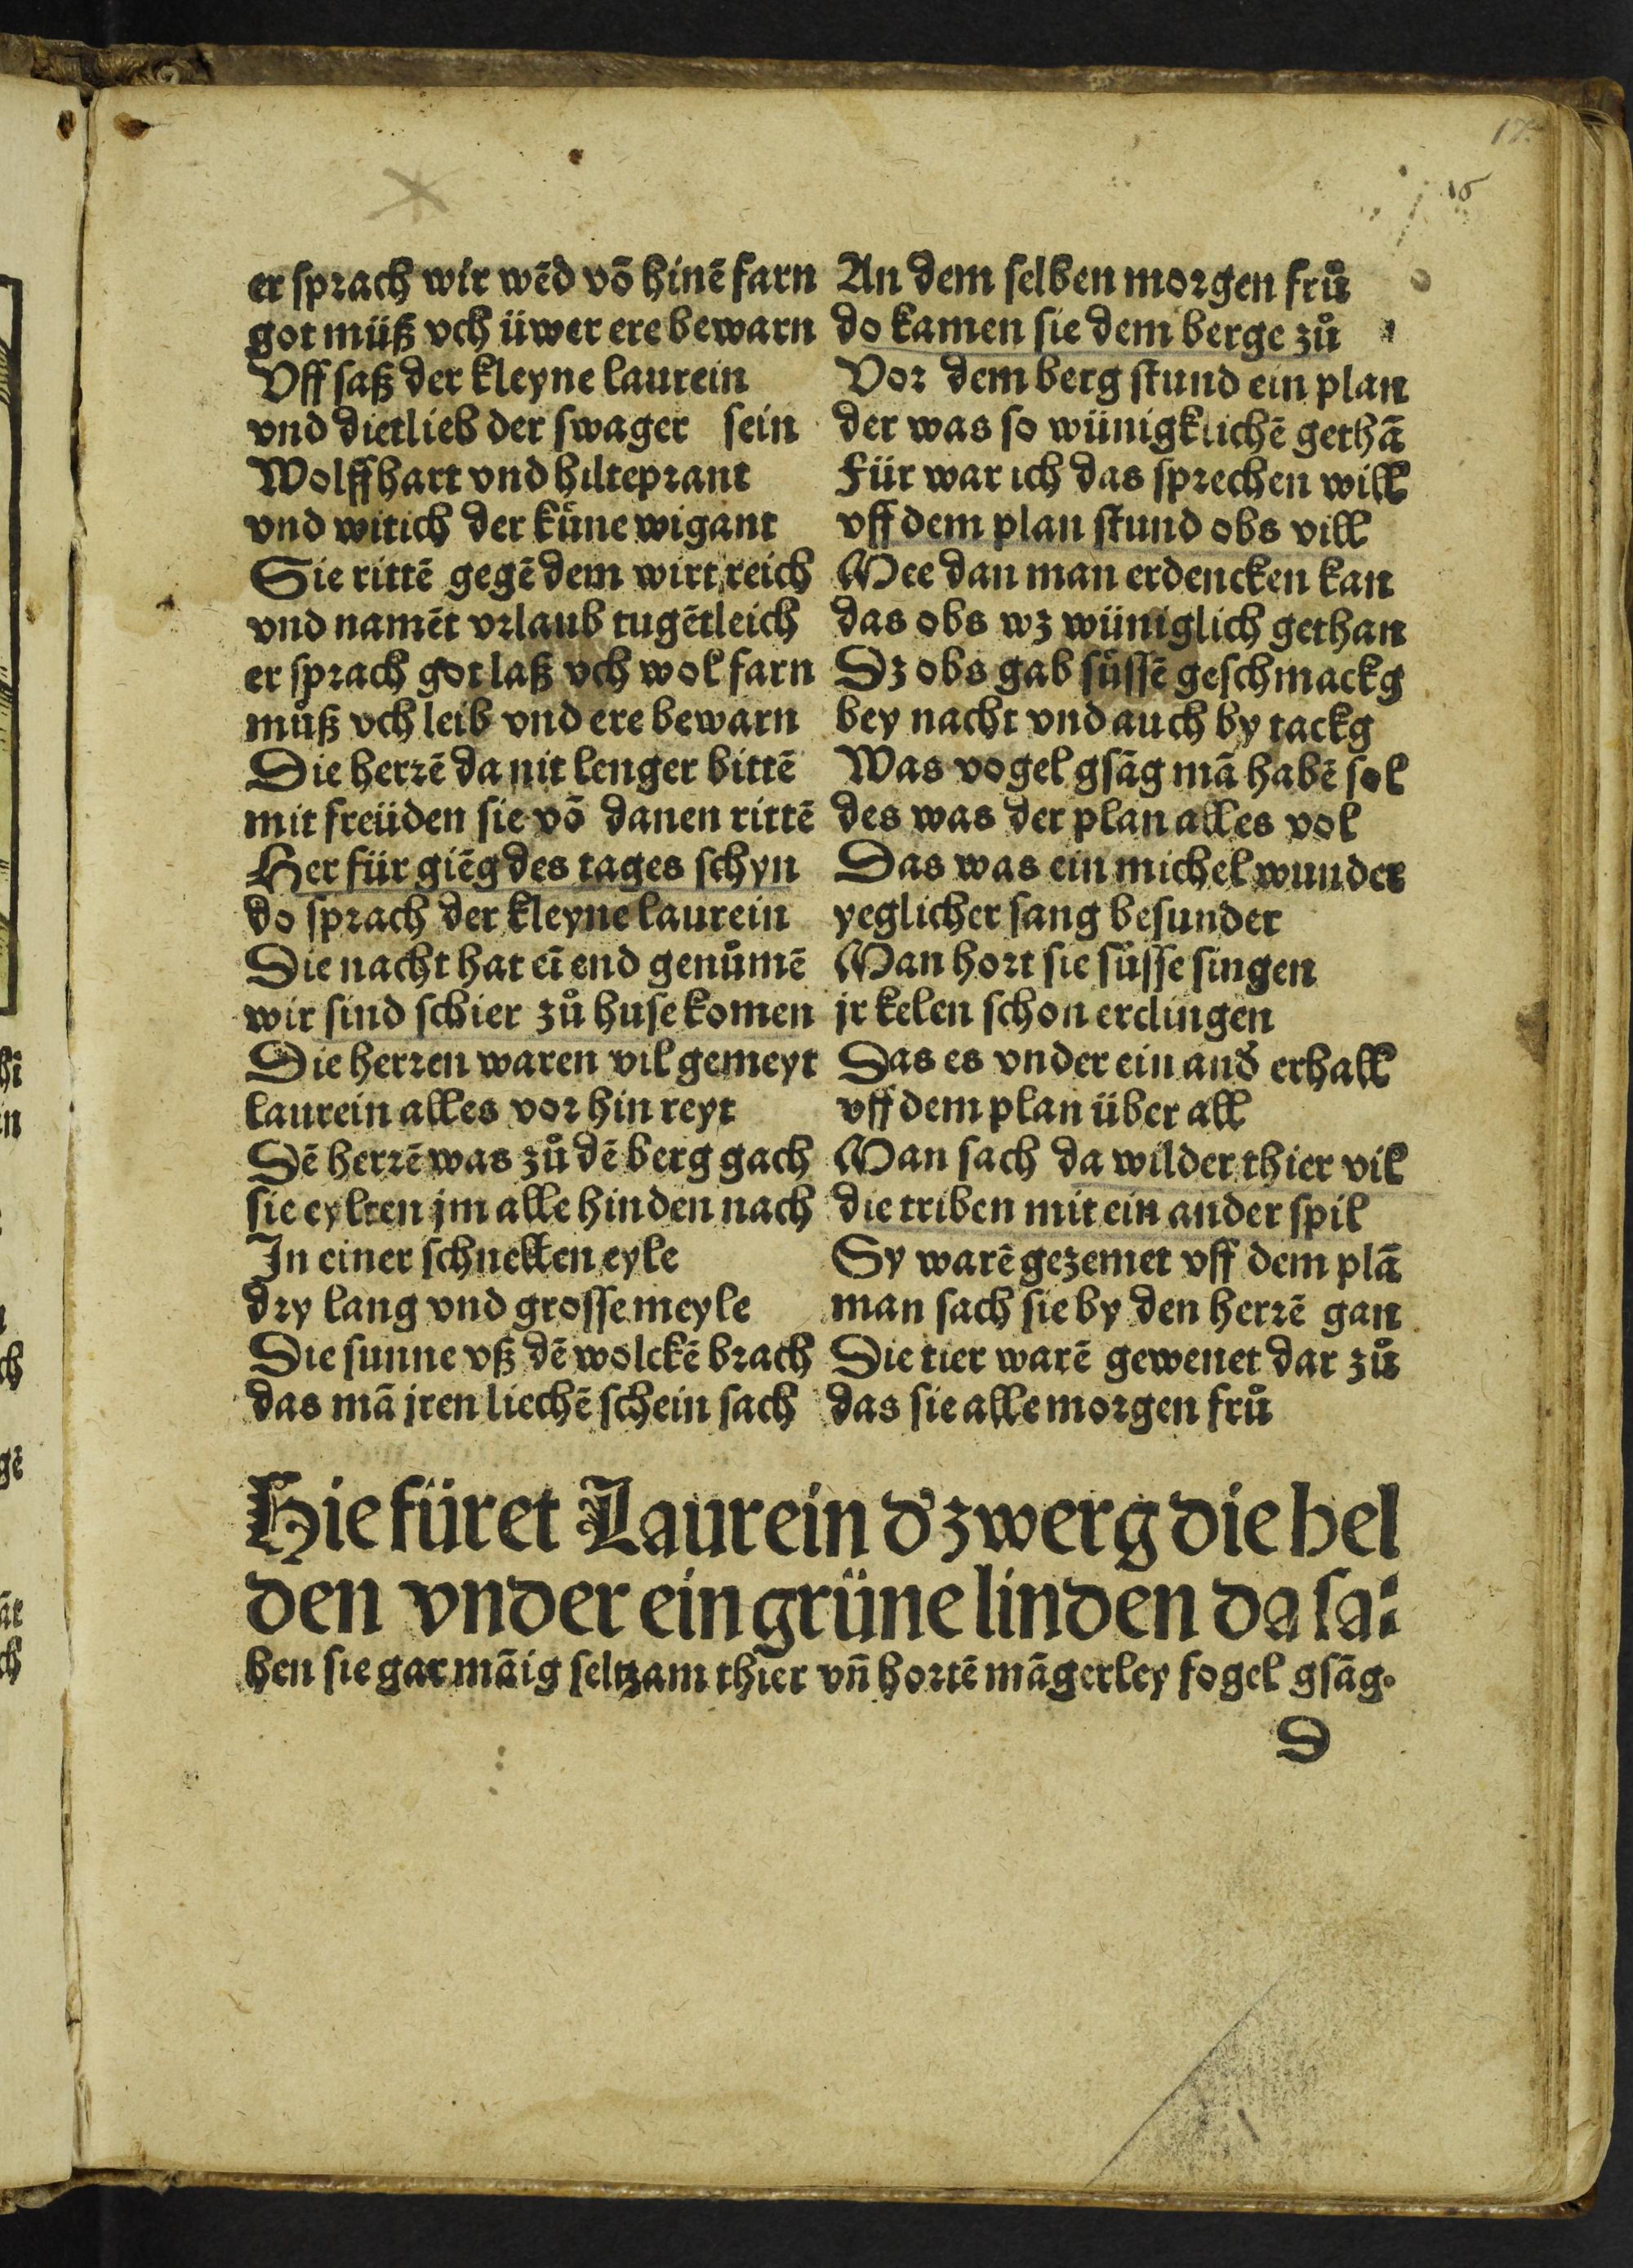 17.
16
er sprach wir wēd vō hinē farn
got müß vch üwer ere bewarn
Vff saß der kleyne laurein
vnd dietlieb der swager sein
Wolffhart vnd hilteprant
vnd witich der kůne wigant
Sie rittē gegē dem wirt reich
vnd namēt vrlaub tugētleich
er sprach got laß vch wol farn
můß vch leib vnd ere bewarn
Die herrē da nit lenger bittē
mit freüden sie vō danen rittē
Her für giēg des tages schyn
do sprach der kleyne laurein
Die nacht hat eī end genůmē
wir sind schier zů huse komen
Die herren waren vil gemeyt
laurein alles vor hin reyt
Dē herrē was zů dē berg gach
sie eylten jm alle hinden nach
In einer schnellen eyle
dry lang vnd grosse meyle
Die sunne vß dē wolckē brach
das mā jren liechē schein sach
An dem selben morgen frů
do kamen sie dem berge zů
Vor dem berg stund ein plan
der was so wünigklichē gethā
Für war ich das sprechen will
vff dem plan stund obs vill
Mee dan man erdencken kan
das obs wz wüniglich gethan
Dz obs gab sůssē geschmackg
bey nacht vnd auch by tackg
Was vogel gsāg mā habē sol
des was der plan alles vol
Das was ein michel wunder
yeglicher sang besunder
Man hort sie sůsse singen
jr kelen schon erclingen
Das es vnder ein and' erhall
vff dem plan über all
Man sach da wilder thier vil
die triben mit ein ander spil
Sy warē gezemet vff dem plā
man sach sie by den herrē gan
Die tier warē gewenet dar zů
das sie alle morgen frů
Hie füret Laurein d' zwerg die hel
den vnder ein grüne linden da sa⸗
hen sie gar māig seltzam thier vn̄ hortē māgerley fogel gsāg.
D